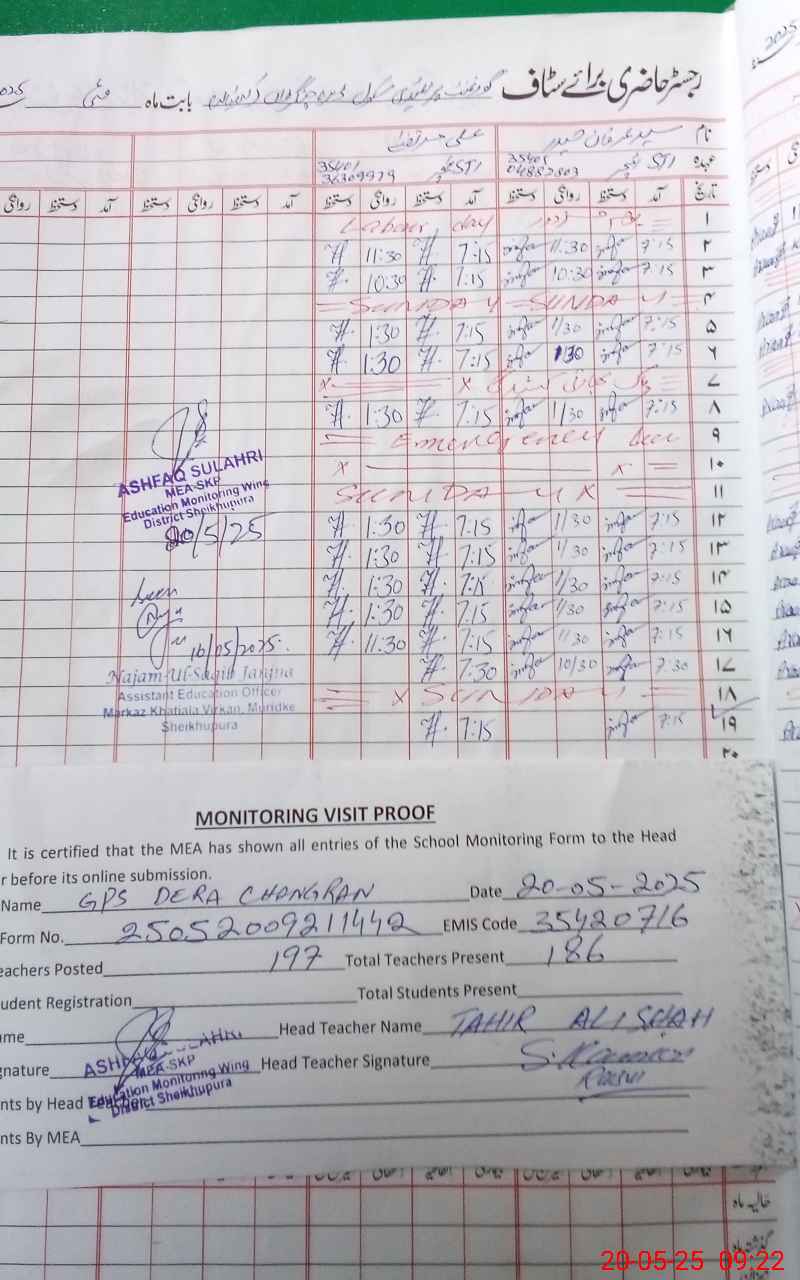 رجسٹر حاضری برائے سٹاف گورنمنٹ پرائمری سکول ڈیرہ بابت ماہ مئی
نام سید عرفان حیدر علی مرتضیٰ
عہدہ STI ٹیچر 35405 04882803 STI ٹیچر 35401
تاریخ آمد دستخط روانگی دستخط آمد دستخط روانگی دستخط آمد دستخط روانگی دستخط آمد دستخط روانگی
۱ Labour day
۲ 7:15 11:30 7:15 11:30
۳ 7:15 10:30 7:15 10:30
۴ = SUNDAY = SUNDAY =
۵ 7:15 1/30 7:15 1:30
۶ 7:15 1:30 7:15 1:30
۷ x x
۸ 7:15 1/30 7:15 1:30
۹ = Emergency
۱۰ x x =
۱۱ SUNDAY x =
۱۲ 7:15 1/30 7:15 1:30
۱۳ 7:15 1/30 7:15 1:30
۱۴ 7:15 1/30 7:15 1:30
۱۵ 7:15 1/30 7:15 1:30
۱۶ 7:15 11:30 7:15 11:30
۱۷ 7:30 10/30 7:30
۱۸ = x SUNDAY =
۱۹ 7:15 7:15
۲۰
ASHFAQ SULAHRI
MEA-SKP
Education Monitoring Wing
District Sheikhupura
20/5/25
Seen
16/05/2025.
Najam-Ul-Saqib Janjua
Assistant Education Officer
Markaz Khatiala Virkan, Muridke
Sheikhupura
MONITORING VISIT PROOF
It is certified that the MEA has shown all entries of the School Monitoring Form to the Head
r before its online submission.
Name GPS DERA CHANGRAN Date 20-05-2025
Form No. 25052009211442 EMIS Code 35420716
eachers Posted 197 Total Teachers Present 186
udent Registration Total Students Present
ame Head Teacher Name TAHIR ALI SHAH
gnature Head Teacher Signature
ASHFAQ SULAHRI
MEA-SKP
Education Monitoring Wing
District Sheikhupura
nts by Head Teacher
nts By MEA
حالیہ ماہ
گذشتہ ماہ
20-05-25 09:22